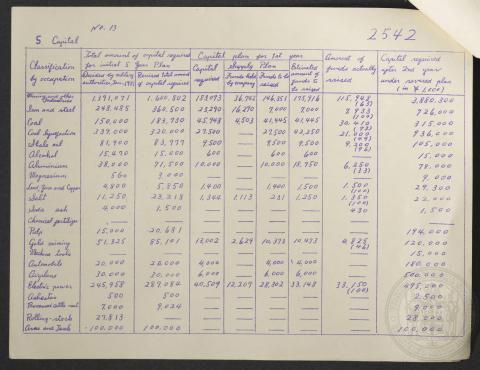 No. 13
2542
5 Capital
Classification by occupation | Total amount of capital required for initial 5 Year Plan | Capital plan for 1st year | Amount of funds actually raised | Capital required after 2nd year under revised plan (in ¥ 1,000)
Decided by military authorities | Revised total amount of capital required | Capital required | Supply Plan | Estimated amount of funds to be raised
Funds held by company | Funds to be raised
Mining and other Industries 1,391,071 1,600,802 183,093 36,742 146,351 175,916 115,948 (65) 3,880,300
Iron and steel 248,485 360,500 23,290 16,290 7,000 7,000 7,933 (109) 726,000
Coal 150,000 183,730 45,948 4,503 41,445 41,445 30,410 (73) 315,000
Coal liquefaction 339,000 320,000 27,500 27,500 42,250 21,000 (49) 936,000
Shale oil 81,900 83,777 9,500 9,500 9,500 9,200 (96) 105,000
Alcohol 15,470 15,000 600 600 600 15,000
Aluminium 38,000 71,500 10,000 10,000 18,750 6,250 (33) 78,000
Magnesium 560 3,000 9,000
Lead, Zinc and Copper 4,800 5,850 1,400 1,400 1,500 1,500 (100) 29,300
Salt 11,250 23,218 1,344 1,113 231 1,250 1,350 (100) 22,000
Soda ash 4,000 1,500 430 1,500
Chemical fertilizer
Pulp 15,000 20,681 194,000
Gold mining 51,325 85,101 13,002 2,629 10,373 10,473 4,825 (46) 120,000
Machine tools 15,000
Automobile 20,000 28,000 4,000 4,000 4,000 180,000
Airplane 30,000 30,000 6,000 6,000 6,000 500,000
Electric power 245,958 287,084 40,509 12,207 28,302 33,148 33,150 (100) 495,000
Asbestos 500 500 2,500
7,000 9,024 9,000
Rolling-stock 27,813 28,000
Arms and Tank 100,000 100,000 100,000